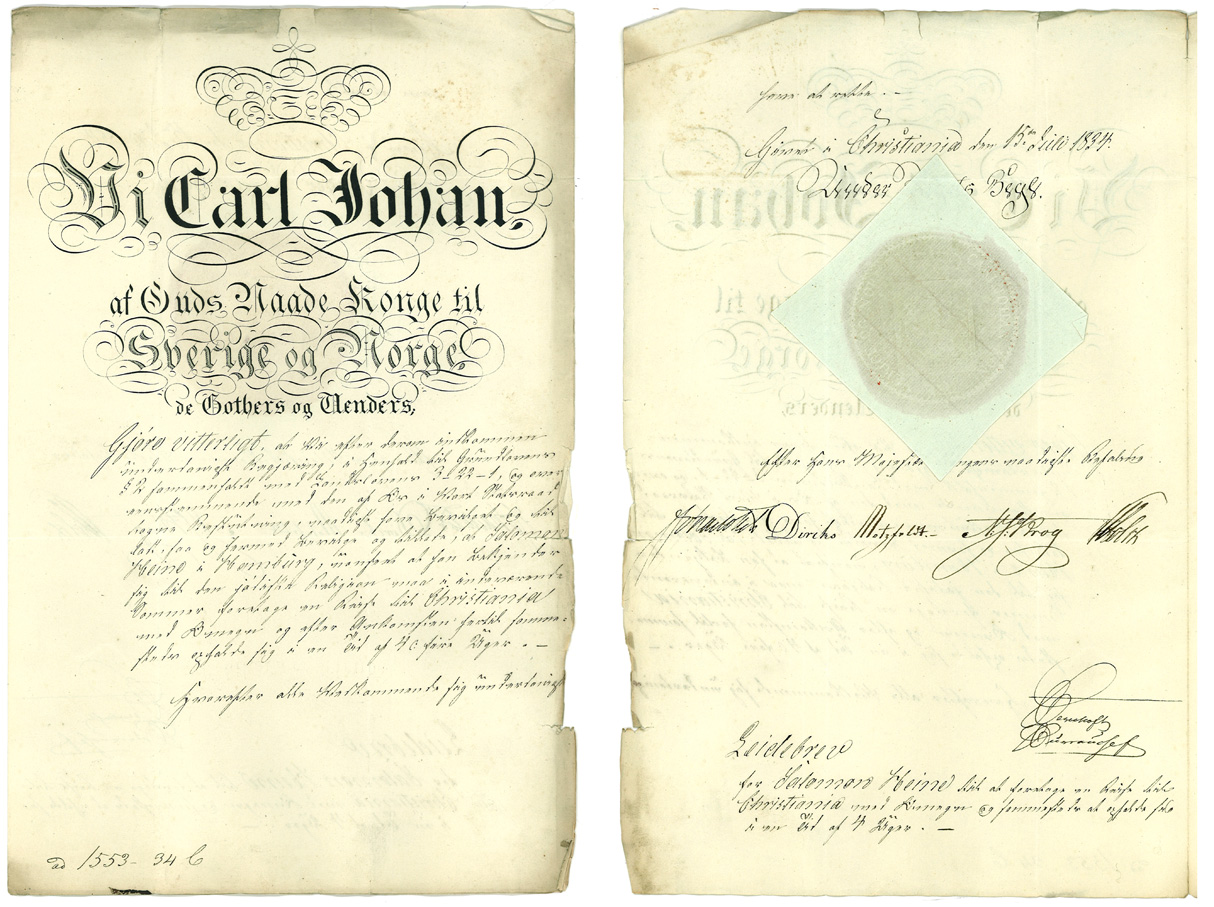 Vi Carl Johan,
af Guds Naade Konge til
Sverige og Norge,
de Gothers og Venders,
Gjøre vitterligt, at Vi efter derom indkommen
underdanigst Begjæring, i Henhold til Grundlovens
§ 2 sammenholdt med Landslovens 3-22-1, og over-
eensstemmende med den af Os i Vort Statsraad
tagne Beslutning, naadigst have bevilget og till-
ladt, saa og hermed bevilge og tillade, at Salomon
Heine i Hamburg, uanseet at han bekjender
sig til den jødiske Religion maa i indeværende
Sommer foretage en Reise til Christiania
med og efter Ankomsten dertil samme-
steds opholde sig i en Tid af 4 fire Uger. —
Hvorefter alle Vedkommende sig underdanigst
ad 1553-34 C
have at rette. —
Givet i Christiania den 15de Juli 1834.
Under Segl.
Efter Hans Majestæts naadigste Befaling
Diriks Motzfeldt. Krog
Leidebrev
for Salomon Heine til at foretage en Reise til
Christiania med og sammesteds at opholde sig
i en Tid af 4 Uger. —